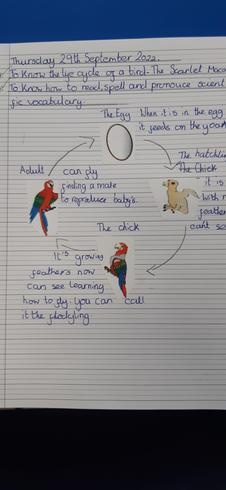 Thursday 29th September 2022.
To Know the lye cycle of a bird- The Scarlet Maca
To Know how to read, spell and pronouce scienti
fic vocabulary.
The Egg When it is in the egg
it feeds on the
The hatchlin
The Chick
it is
with n
feather
cant se
Adult can fly
finding a mate
to reproduce baby's.
The chick
It's growing
feathers now
can see learning
how to fly. You can call
it the fledgling.